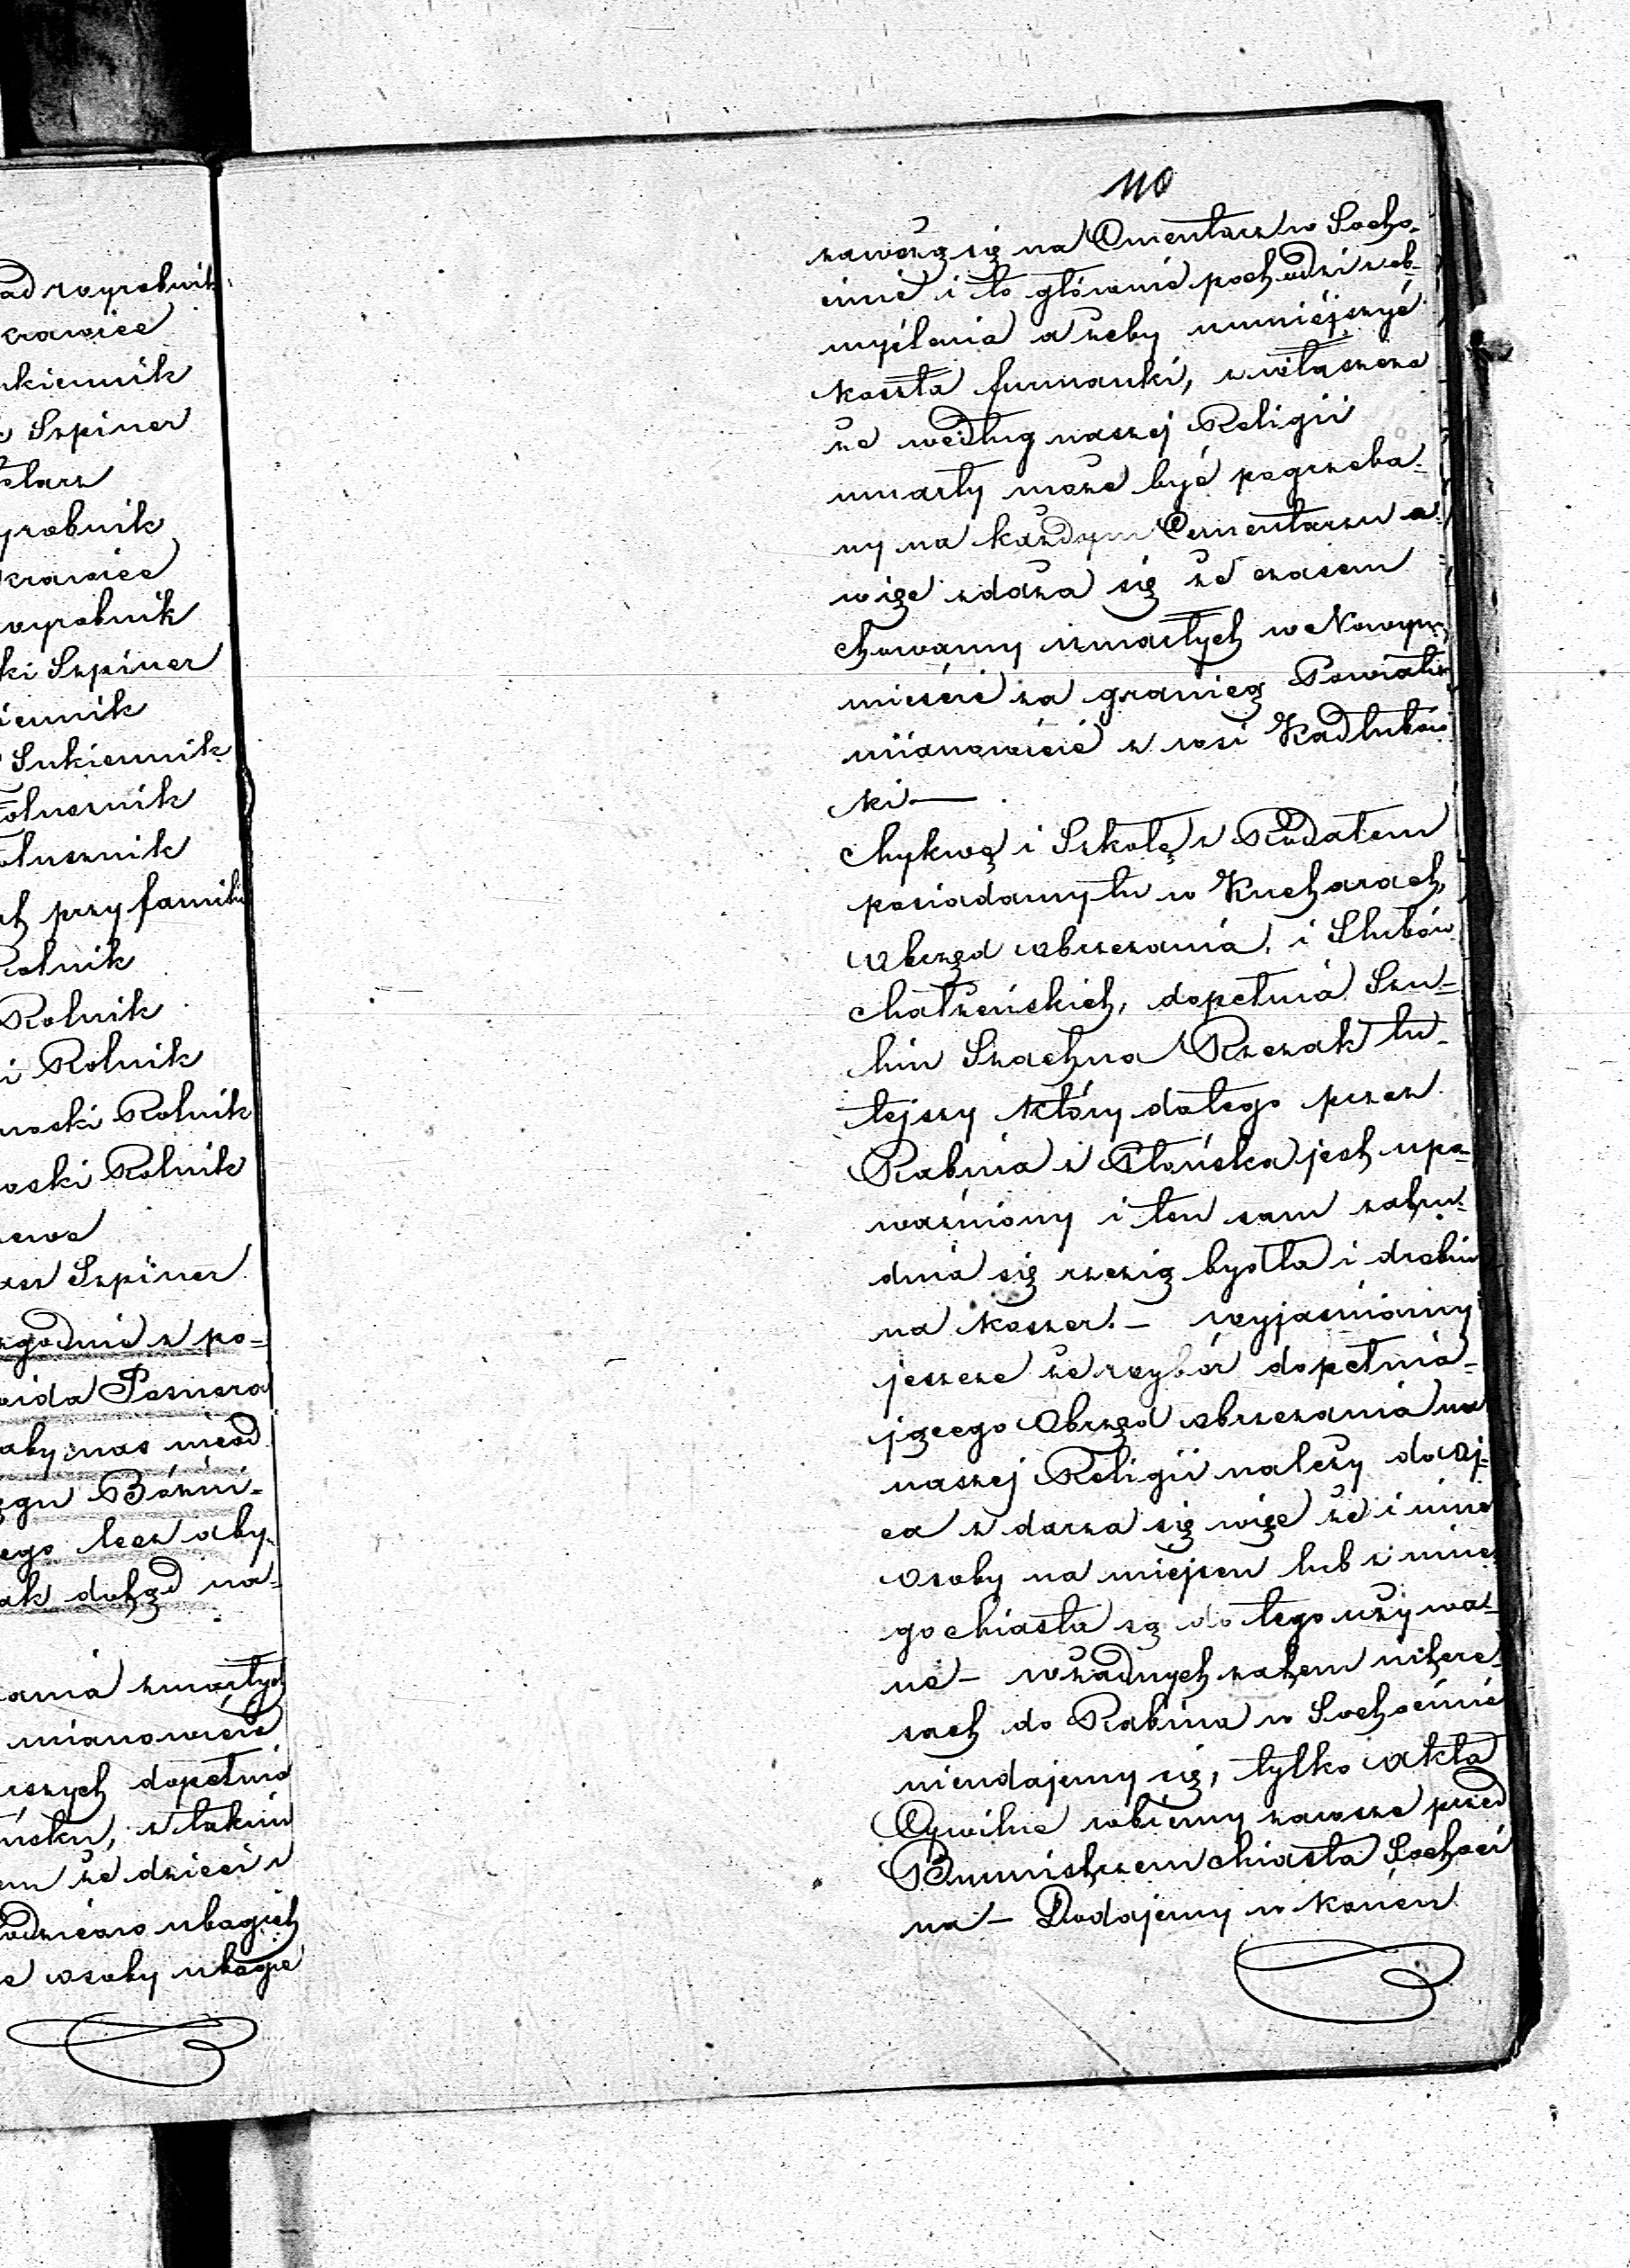 ad wyrobnik
krawiec
ukiennik
Szpiner
tolarz
yrobnik
krawiec
wyrobnik
ki Szpiner
iennik
Sukiennik
Folusznik
olusznik
ch przy familii
Rolnik
Rolnik
i Rolnik
moski Rolnik
oski Rolnik
ewa
asz Szpiner
zgodnie z po-
wida Posnera
aby nas nieod
ęgu Bóźni-
ego lecz aby
ak dotąd na-
ania zmarłych
mianowicie
uszych dopełnia
ńsku, z takim
em że dzieci z
odziców ubogich
e osoby ubogie
110
zawożą się na Cmentarz w Socho-
cinie i to głównie pochodzi z ob-
myślenia ażeby umniéjszyć
koszta furmanki, zwłaszcza
że według naszej Religii
umarły może być pogrzeba-
ny na każdym Cementarzu a
więc zdarza się że czasem
chowamy zmarłych w Nowym
mieście za granicą Powiatu
mianowicie z wsi Kadłubów
ki —
Mykwę i Szkołę z Rodałem
posiadamy tu w Kucharach,
Obrząd obrzezania, i Slubów
Małżeńskich, dopełnia Szu-
lim Szachna Rzezak tu-
tejszy który do tego przez
Rabina z Płońska jest upo-
ważniony i ten sam zatru-
dnia się rzezią bydła i drobiu
na koszer. — wyjaśniamy
jeszcze że wybór dopełnia-
jącego Obrząd obrzezania w
naszej Religii należy do Oj-
ca zdarza się więc że i inne
osoby na miejscu lub z inne
go Miasta są do tego używa-
ne — w żadnych zatem intere-
sach do Rabina w Sochocinie
nieudajemy się, tylko Akta
Cywilne robiemy zawsze przed
Burmistrzem Miasta Sochoci
na — Dodajemy w końcu